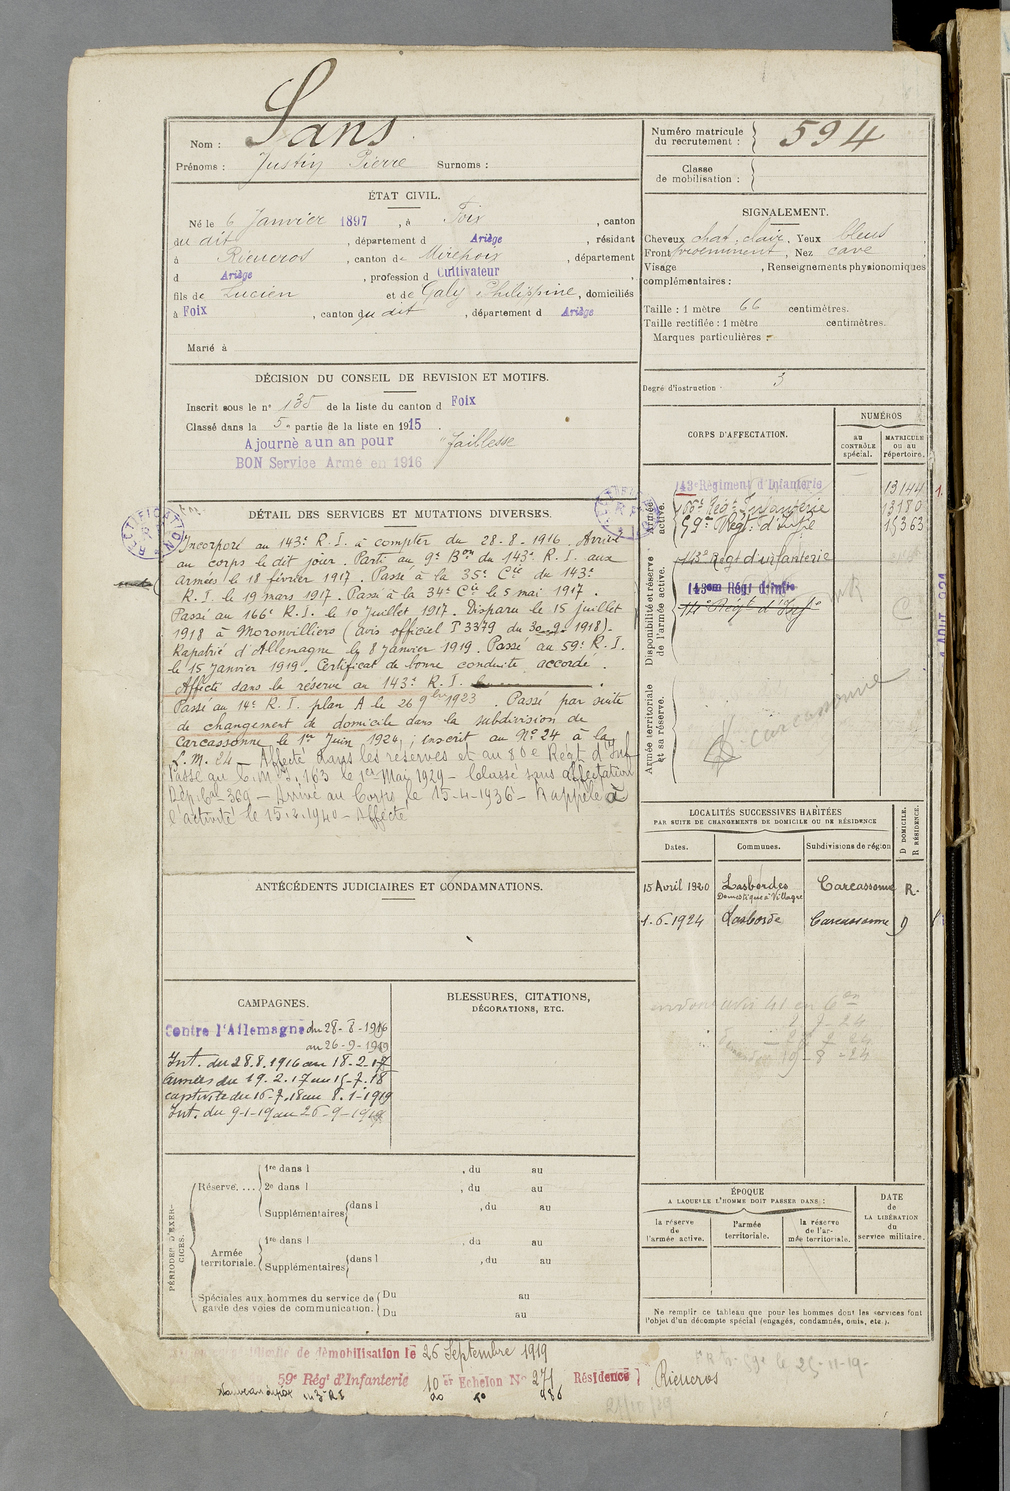 Nom : Sans
Prénoms : Justin Pierre Surnoms :
ÉTAT CIVIL.
Né le 6 Janvier 1897, à Foix, canton
du dit, département d Ariège, résidant
à Rieucros, canton de Mirepoix, département
d Ariège, profession d Cultivateur,
fils de Lucien et de Galy Philippine, domiciliés
à Foix, canton du dit, département d Ariège
Marié à
DÉCISION DU CONSEIL DE REVISION ET MOTIFS.
Inscrit sous le n° 135 de la liste du canton d Foix
Classé dans la 5e partie de la liste en 1915.
Ajourné à un an pour "faiblesse
BON Service Armé en 1916
DÉTAIL DES SERVICES ET MUTATIONS DIVERSES.
RECTIFICATION
Incorporé au 143e R. I. à compter du 28-8-1916. Arrivé
au corps le dit jour. Parti au 9e Bon du 143e R. I. aux
armées le 18 février 1917. Passé à la 35e Cie du 143e
R. I. le 19 mars 1917. Passé à la 34e Cie le 5 mai 1917.
Passé au 166e R. I. le 10 juillet 1917. Disparu le 15 juillet
1918 à Moronvilliers (avis officiel P 3379 du 30-9-1918).
Rapatrié d'Allemagne le 8 Janvier 1919. Passé au 59e R. I.
le 15 Janvier 1919. Certificat de bonne conduite accordé.
Affecté dans la réserve au 143e R. I.
Passé au 14e R. I. plan A le 26 9bre 1923. Passé par suite
de changement de domicile dans la subdivision de
Carcassonne le 1er Juin 1924; inscrit au N° 24 à la
L. M. 24 - Affecté dans les réserves et au 80e Régt d'Inf
Passé au C. M. I. 163 le 1er Mai 1929 - Classé sans affectation
Dép. Cal 369 - Arrivé au Corps le 15-4-1936 - Rappelé à
l'activité le 15.2.1940 - Affecté
ANTÉCÉDENTS JUDICIAIRES ET CONDAMNATIONS.
CAMPAGNES.
Contre l'Allemagne du 28-8-1916
au 26-9-1919
Int. du 28.8.1916 au 18.2.17
armées du 19.2.17 au 15-7.18
captivité du 16.7.18 au 8.1-1919
Int. du 9-1-19 au 26-9-1919
BLESSURES, CITATIONS,
DÉCORATIONS, ETC.
PÉRIODES D'EXERCICES.
Réserve....
1re dans l , du au
2e dans l , du au
Supplémentaires dans l , du au
Armée territoriale.
1re dans l , du au
Supplémentaires dans l , du au
Spéciales aux hommes du service de garde des voies de communication.
Du au
Du au
Numéro matricule
du recrutement : 594
Classe
de mobilisation :
SIGNALEMENT.
Cheveux chat. clair, Yeux bleus
Front proéminent, Nez cave
Visage , Renseignements physionomiques
complémentaires :
Taille : 1 mètre 66 centimètres.
Taille rectifiée : 1 mètre centimètres.
Marques particulières :
Degré d'instruction : 3
CORPS D'AFFECTATION.
NUMÉROS
AU CONTRÔLE spécial.
MATRICULE ou au répertoire.
Armée active.
143e Régiment d'Infanterie 13144
166e Régt Infanterie 13180
59e Régt. d'Inftie 15363
Disponibilité et réserve de l'armée active.
143e Régt d'infanterie
143eme Régt d'Inftie
14e Régt d'Inf
Armée territoriale et sa réserve.
Carcassonne
LOCALITÉS SUCCESSIVES HABITÉES
PAR SUITE DE CHANGEMENTS DE DOMICILE OU DE RÉSIDENCE
Dates. Communes. Subdivisions de région D DOMICILE. R RÉSIDENCE.
15 Avril 1920 Lasbordes Carcassonne R.
Domestique à Villagre
1-6-1924 Lasborde Carcassonne D
ÉPOQUE
A LAQUELLE L'HOMME DOIT PASSER DANS :
la réserve de l'armée active.
l'armée territoriale.
la réserve de l'armée territoriale.
DATE de LA LIBÉRATION du service militaire.
Ne remplir ce tableau que pour les hommes dont les services font
l'objet d'un décompte spécial (engagés, condamnés, omis, etc.).
de démobilisation le 26 Septembre 1919
59e Régt d'Infanterie 10 er Echelon N° 271 Résidence Rieucros